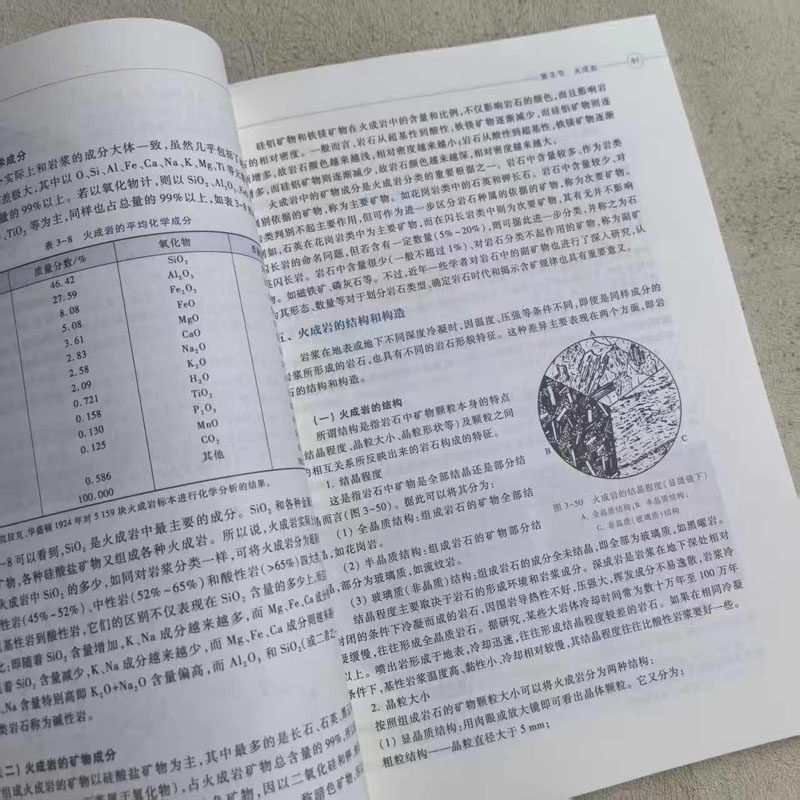 学成分
实际上和岩浆的成分大体一致，虽然几乎包括了
差极大，其中以 O、Si、Al、Fe、Ca、Na、K、Mg、Ti 等
量的 99%以上。若以氧化物计，则以 SiO₂、Al₂O₃、Fe
、TiO₂ 等为主，同样也占总量的 99%以上，如表 3-8
表 3-8 火成岩的平均化学成分
质量分数/% 氧化物
46.42 SiO₂
27.59 Al₂O₃
8.08 Fe₂O₃
5.08 FeO
3.61 MgO
2.83 CaO
2.58 Na₂O
2.09 K₂O
0.721 H₂O
0.158 TiO₂
0.130 P₂O₅
0.125 MnO
CO₂
0.586 其他
100.000
克拉克、华盛顿 1924 年对 5 159 块火成岩标本进行化学分析的结果。
-8 可以看到，SiO₂ 是火成岩中最主要的成分。SiO₂ 和各种金属
矿物，各种硅酸盐矿物又组成各种火成岩。所以说，火成岩实际
火成岩中 SiO₂ 的多少，如同对岩浆分类一样，可将火成岩分为超基
性岩(45%~52%)、中性岩(52%~65%)和酸性岩(>65%)四大
基性岩到酸性岩，它们的区别不仅表现在 SiO₂ 含量的多少上，而
化；即随着 SiO₂ 含量增加，K、Na 成分越来越多，而 Mg、Fe、Ca 成
着 SiO₂ 含量减少，K、Na 成分越来越少，而 Mg、Fe、Ca 成分则越来越
、Na 含量特别高即 K₂O+Na₂O 含量偏高，而 Al₂O₃ 和 SiO₂(或二者之一
类岩石称为碱性岩。
(二) 火成岩的矿物成分
组成火成岩的矿物以硅酸盐矿物为主，其中最多的是长石、石英、
属于氧化物)，占火成岩矿物总含量的 99%，所
矿物，因以二氧化硅和
称暗色矿物，
第 3 节 火成岩 81
硅铝矿物和铁镁矿物在火成岩中的含量和比例，不仅影响岩石的颜色，而且影响岩
石的相对密度。一般而言，岩石从超基性到酸性，铁镁矿物逐渐减少，而硅铝矿物则逐
渐增多，故岩石颜色越来越浅，相对密度越来越小；岩石从酸性到超基性，铁镁矿物逐渐
增多，而硅铝矿物则逐渐减少，故岩石颜色越来越深，相对密度越来越大。
火成岩中的矿物成分是火成岩分类的重要根据之一。岩石中含量较多、作为岩类
划别依据的矿物，称为主要矿物。如花岗岩类中的石英和钾长石。岩石中含量较少、对
岩类判别不起主要作用，但可作为进一步区分岩石种属的依据的矿物，称为次要矿物。
例如，石英在花岗岩类中为主要矿物，而在闪长岩类中则为次要矿物，其有无并不影响
闪长岩的命名问题，但若含有一定数量(5%~20%)，则可据此进一步分类，并称之为石
英闪长岩。岩石中含量很少(一般不超过 1%)、对岩石分类不起作用的矿物，称为副矿
物。如磁铁矿、磷灰石等。不过，近年一些学者对岩石中的副矿物也进行了深入研究，认
为其形态、数量等对于划分岩石类型，确定岩石时代和揭示含矿规律也具有重要意义。
五、火成岩的结构和构造
岩浆在地表或地下不同深度冷凝时，因温度、压强等条件不同，即使是同样成分的
岩浆所形成的岩石，也具有不同的岩石形貌特征。这种差异主要表现在两个方面，即岩
石的结构和构造。
(一) 火成岩的结构
所谓结构是指岩石中矿物颗粒本身的特点
(结晶程度、晶粒大小、晶粒形状等)及颗粒之间
的相互关系所反映出来的岩石构成的特征。
1. 结晶程度
这是指岩石中矿物是全部结晶还是部分结
晶而言(图 3-50)。据此可以将其分为：
(1) 全晶质结构：组成岩石的矿物全部结
晶，如花岗岩。
(2) 半晶质结构：组成岩石的矿物部分结
晶，部分为玻璃质，如流纹岩。
A
B
C
图 3-50 火成岩的结晶程度(显微镜下)
A. 全晶质结构；B. 半晶质结构；
C. 非晶质(玻璃质)结构
(3) 玻璃质(非晶质)结构：组成岩石的成分全未结晶，即全部为玻璃质，如黑曜岩。
结晶程度主要取决于岩石的形成环境和岩浆成分。深成岩是岩浆在地下深处相对
封闭的条件下冷凝而成的岩石，因围岩导热性不好，压强大，挥发成分不易逸散，岩浆冷
凝缓慢，往往形成全晶质岩石。据研究，某些大岩体冷却时间常为数十万年至 100 万年
以上。喷出岩形成于地表，冷却迅速，往往形成结晶程度较差的岩石。如果在相同冷凝
条件下，基性岩浆温度高、黏性小、冷却相对较慢，其结晶程度往往比酸性岩浆要好一些。
2. 晶粒大小
按照组成岩石的矿物颗粒大小可以将火成岩分为两种结构；
(1) 显晶质结构：用肉眼或放大镜即可看出晶体颗粒。它又分为：
粗粒结构——晶粒直径大于 5 mm；